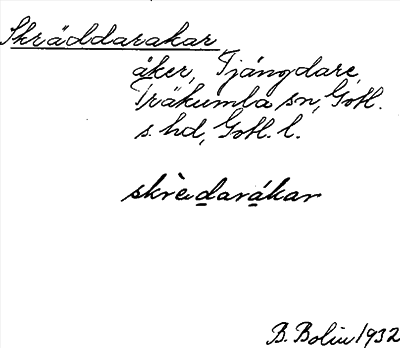 Skräddarakar
åker, Tjängdare,
Träkumla sn, Gotl.
s. hd, Gotl. l.
skrèḏaráḵar
B. Bolin 1932